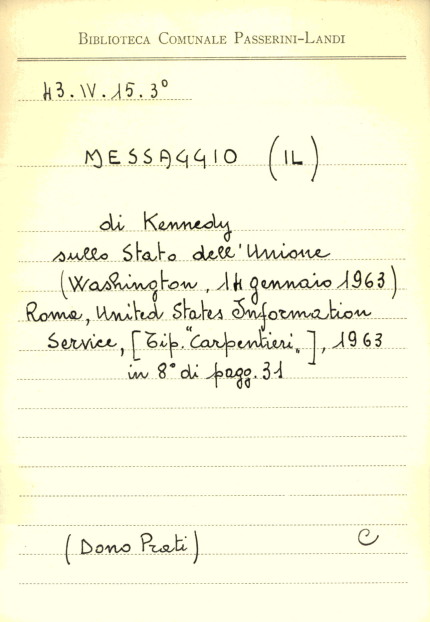 BIBLIOTECA COMUNALE PASSERINI-LANDI
43.IV.15.3°
MESSAGGIO (IL)
di Kennedy
sullo Stato dell'Unione
(Washington, 14 gennaio 1963)
Roma, United States Information
Service, [Tip. "Carpentieri"], 1963
in 8° di pagg. 31
(Dono Prati)
C